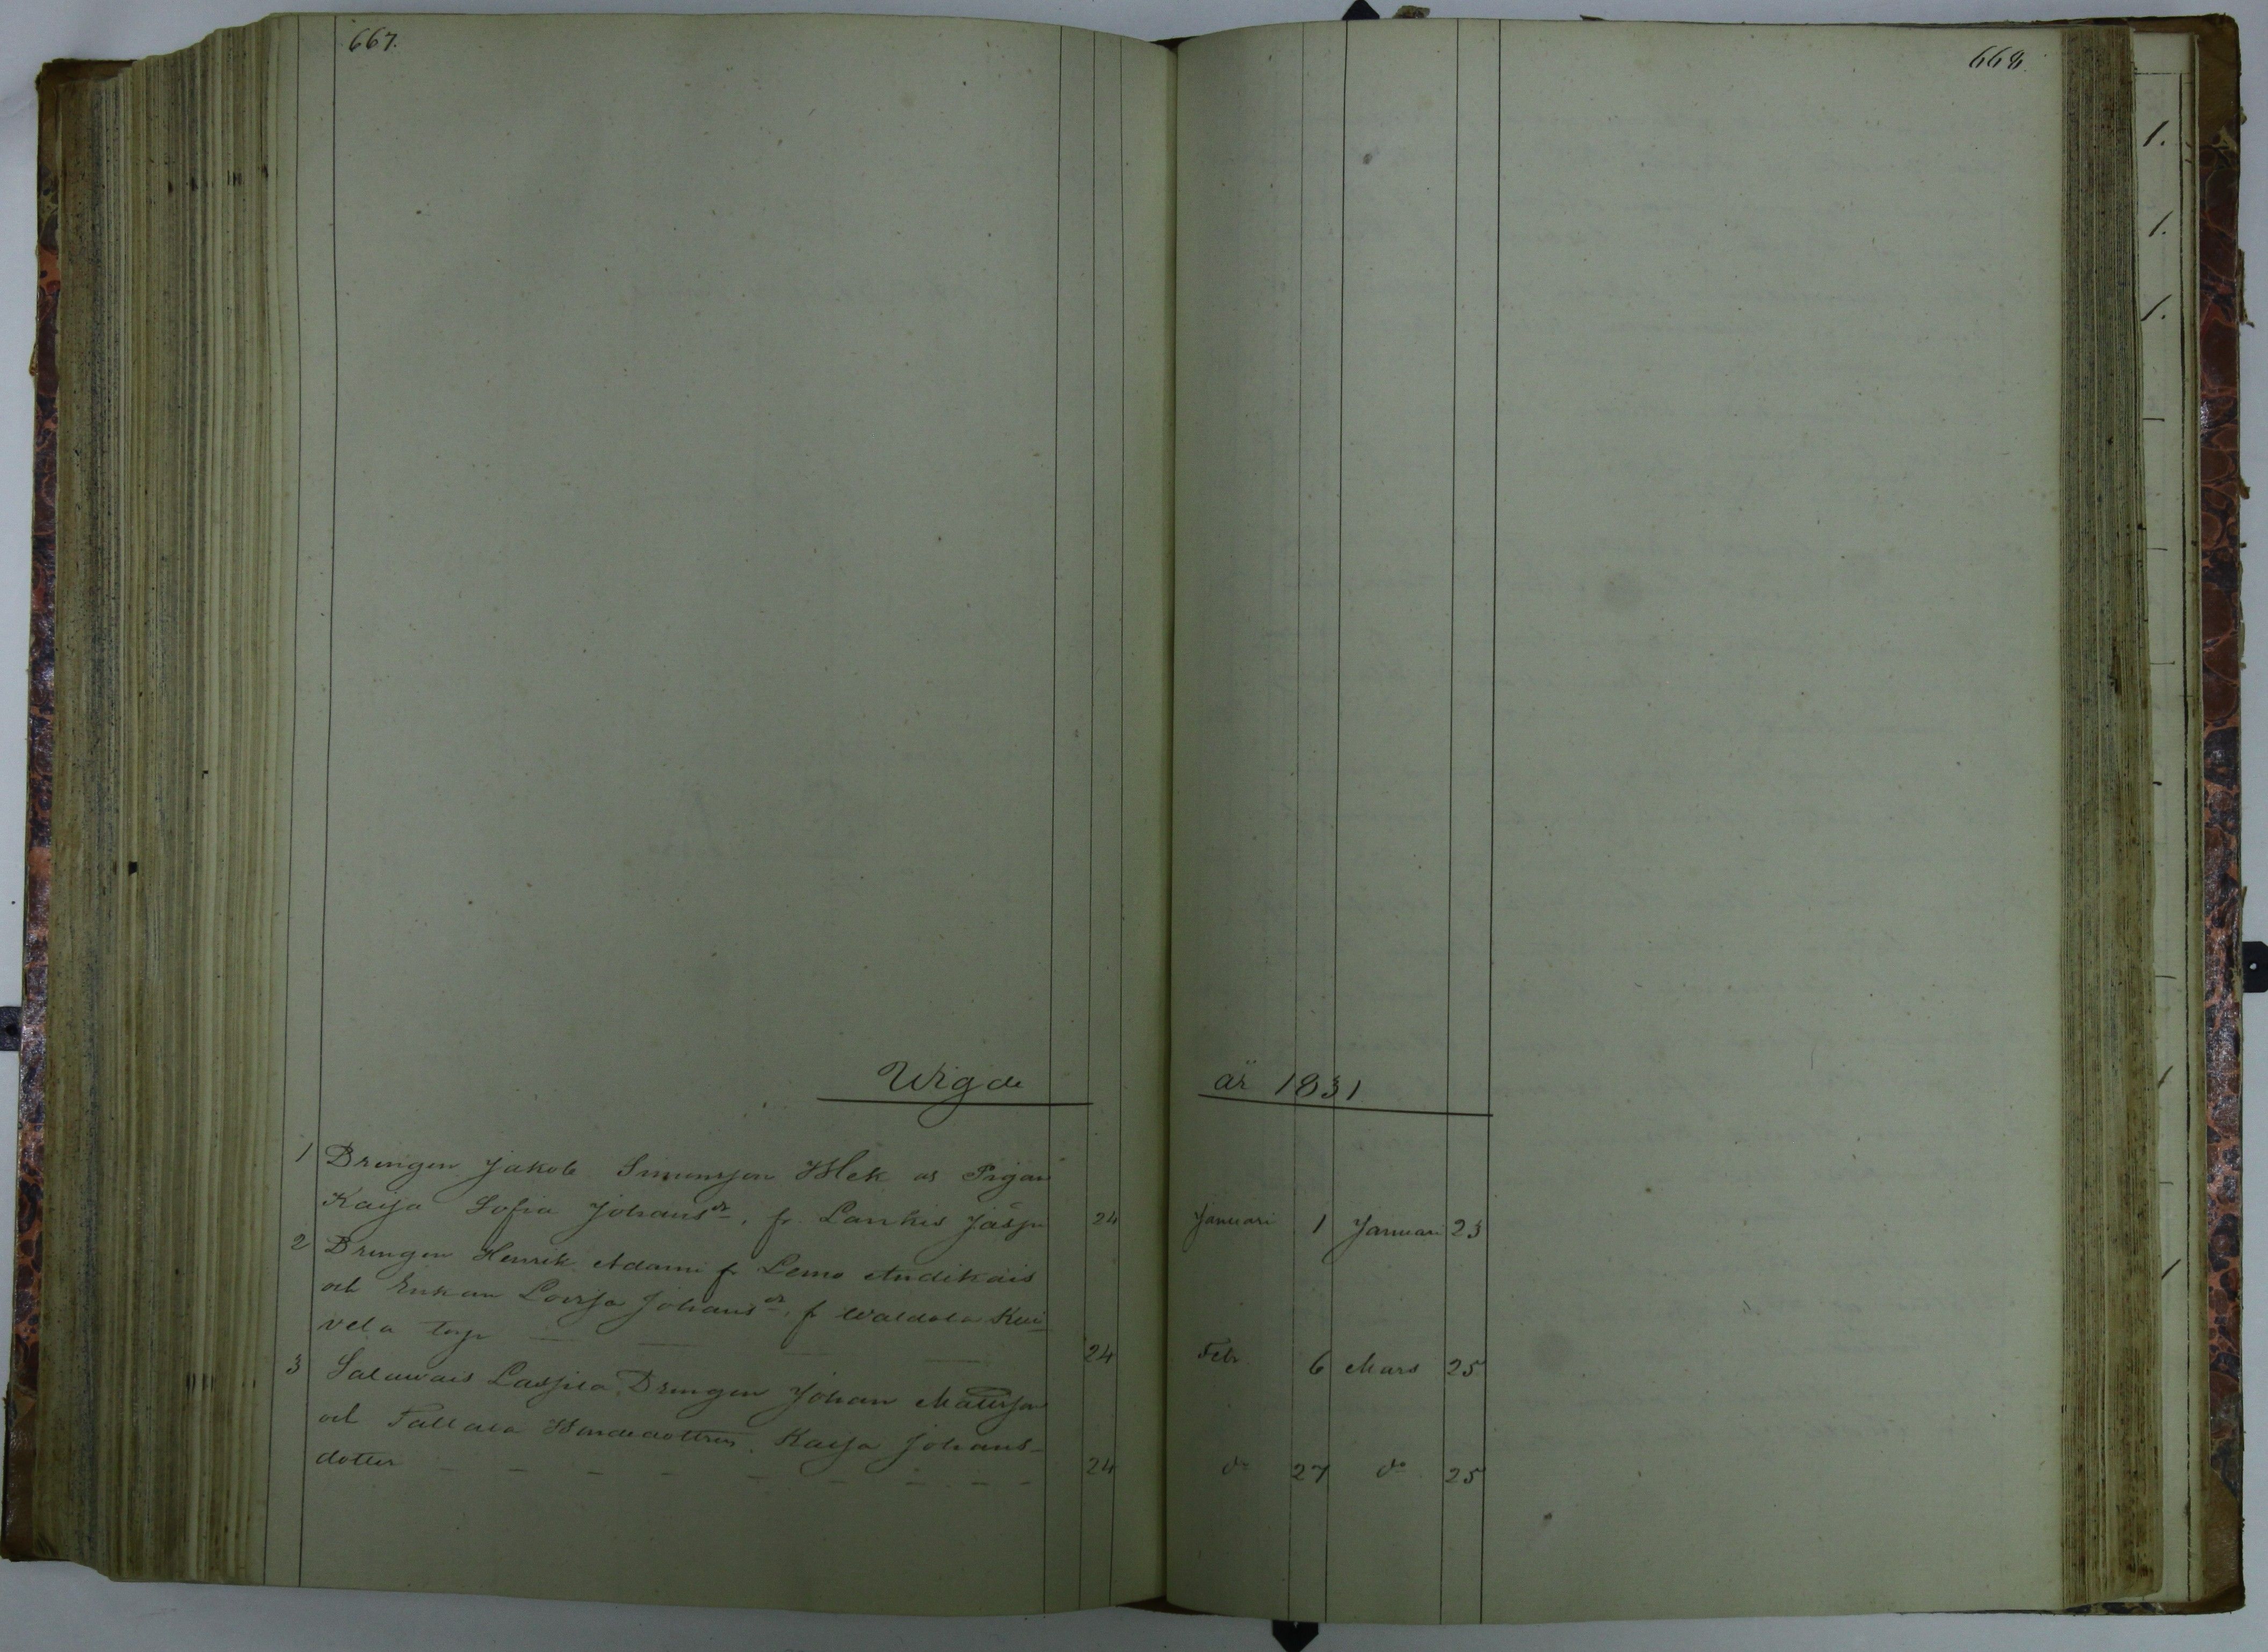 667.
668.
Wigde år 1831
1 Drengen Jakob Simonsson Hlek o Pigan
Kaisa Sofia Johansdr, fr. Lankis Jäsju 24 Januari 1 Januari 23
2 Drengen Henrik Adami fr Lemo Andikais
och Enkan Lovisa Johansdr, fr Waldola Kui-
vela torp — — — — 24 Febr 6 Mars 25
3 Salawais Laspila Drengen Johan Mattsson
och Tallava Bondedottren, Kaisa Johans-
dotter - - - - - - - - - 24 do 27 do 25
1.
1.
1.
1
1